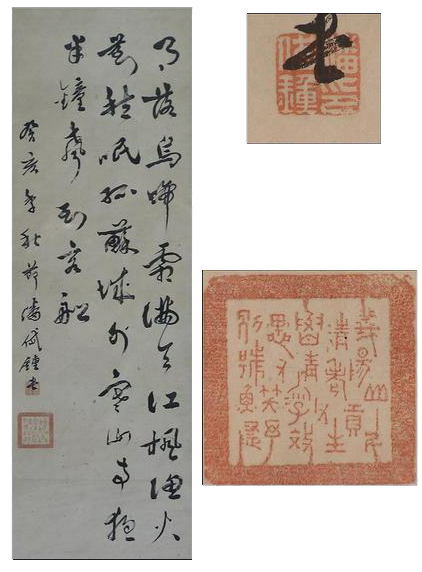 月落烏啼霜滿天江楓漁火
對愁眠姑蘇城外寒山寺夜
半鐘聲到客船
癸亥年秋節潘佩鍾書
書
潘印
佩鍾